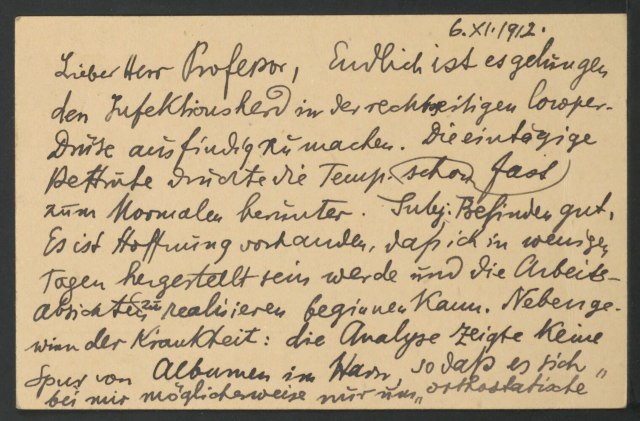 6. XI. 1912.
Lieber Herr Professor, Endlich ist es gelungen
den Infektionsherd in der rechtseitigen Cowper-
Drüse ausfindig zu machen. Die eintägige
Bettruhe drückte die Temp. schon fast
zum Normalen herunter. Subj. Befinden gut.
Es ist Hoffnung vorhanden, daß ich in wenigen
Tagen hergestellt sein werde und die Arbeits-
absichten zu realisieren beginnen kann. Nebenge-
winn der Krankheit: die Analyse zeigte keine
Spur von Albumen im Harn, so daß es sich
bei mir möglicherweise nur um „orthostatische"